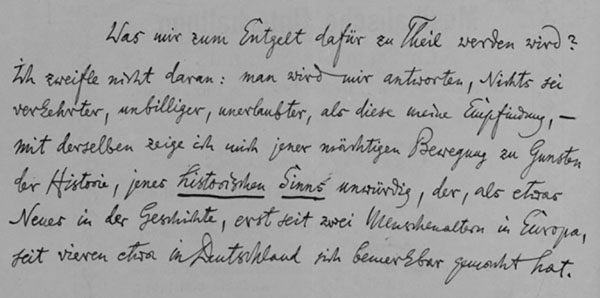 Was mir zum Entgelt dafür zu Theil werden wird?
Ich zweifle nicht daran: man wird mir antworten, Nichts sei
verkehrter, unbilliger, unerlaubter, als diese meine Empfindung, —
mit derselben zeige ich mich jener mächtigen Bewegung zu Gunsten
der Historie, jenes historischen Sinns unwürdig, der, als etwas
Neues in der Geschichte, erst seit zwei Menschenaltern in Europa,
seit vieren etwa in Deutschland sich bemerkbar gemacht hat.